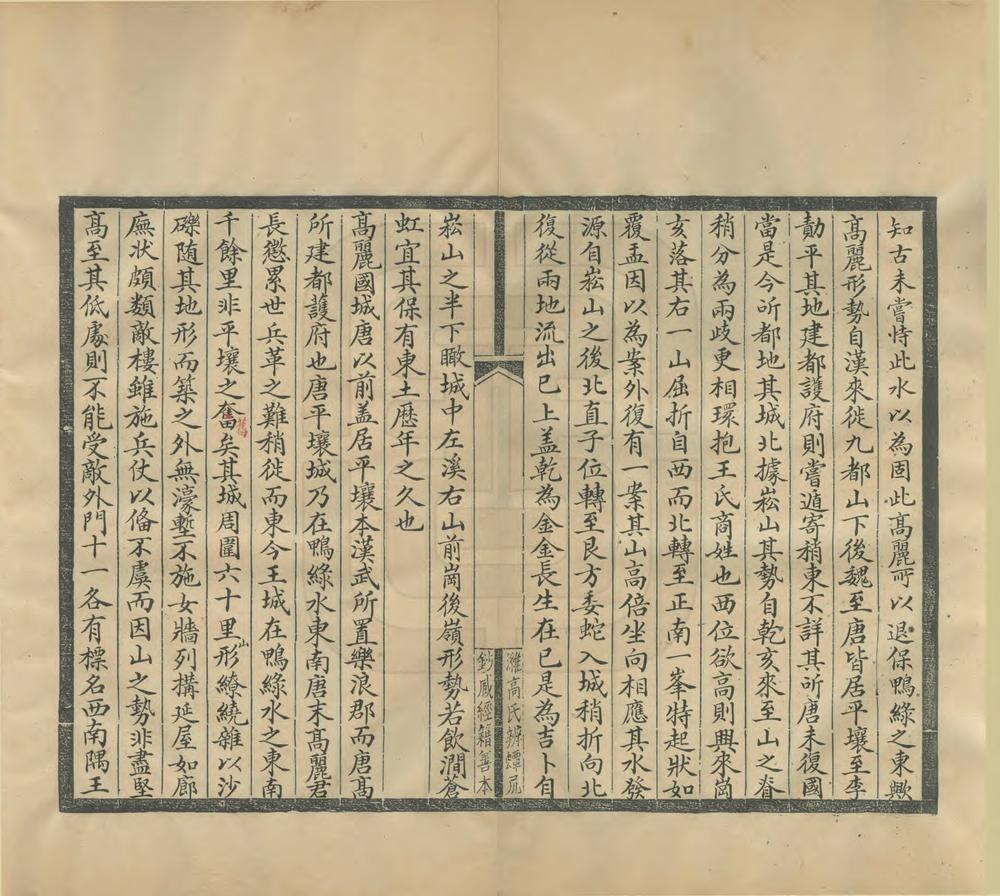 知古未嘗恃此水以為固此髙麗所以退保鴨綠之東歟
髙麗形勢自漢來徙九都山下後魏至唐皆居平壤至李
勣平其地建都護府則嘗遁寄稍東不詳其所唐末復國
當是今所都地其城北據崧山其勢自乾亥來至山之脊
稍分為兩歧更相環抱王氏商姓也西位欲高則興來崗
亥落其右一山屈折自西而北轉至正南一峯特起狀如
覆盂因以為案外復有一案其山高倍坐向相應其水發
源自崧山之後北直子位轉至艮方委蛇入城稍折向北
復從兩地流出巳上蓋乾為金金長生在巳是為吉卜自
濰高氏辨蟫凥
鈔臧經籍善本
崧山之半下瞰城中左溪右山前崗後嶺形勢若飲澗蒼
虹宜其保有東土歷年之久也
髙麗國城唐以前盖居平壤本漢武所置樂浪郡而唐髙
所建都護府也唐平壤城乃在鴨綠水東南唐末髙麗君
長懲累世兵革之難稍徙而東今王城在鴨綠水之東南
千餘里非平壤之奮舊矣其城周圍六十里山形繚繞雜以沙
礫隨其地形而築之外無濠塹不施女牆列搆延屋如廊
廡狀頗類敵樓雖施兵仗以偹不虞而因山之勢非盡堅
髙至其低處則不能受敵外門十一各有標名西南隅王